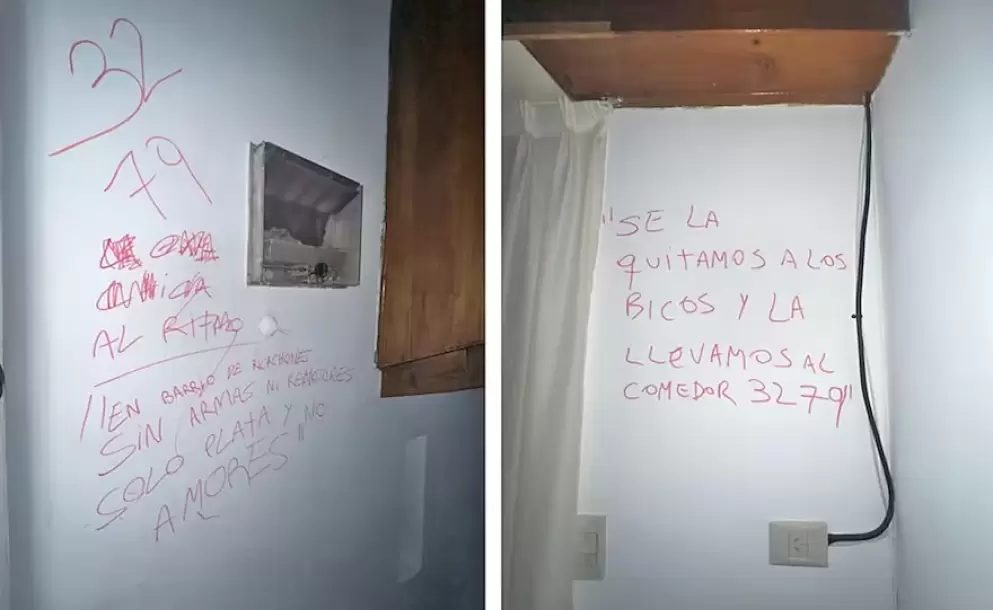 32
79
AL RITMO
"EN BARRIO DE RICACHONES
SIN ARMAS NI RENCORES
SOLO PLATA Y NO
AMORES"
"SE LA
QUITAMOS A LOS
BICOS Y LA
LLEVAMOS AL
COMEDOR 3279"